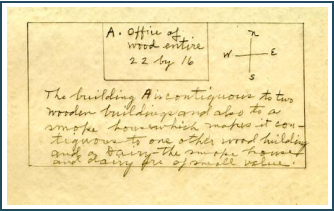 A. Office of
wood entire
22 by 16
N
W E
S
The building A is contiguous to two
wooden buildings and also to a
smoke house which makes it con-
tiguous to one other wood building
and a Dairy - the smoke house
and dairy are of small value.